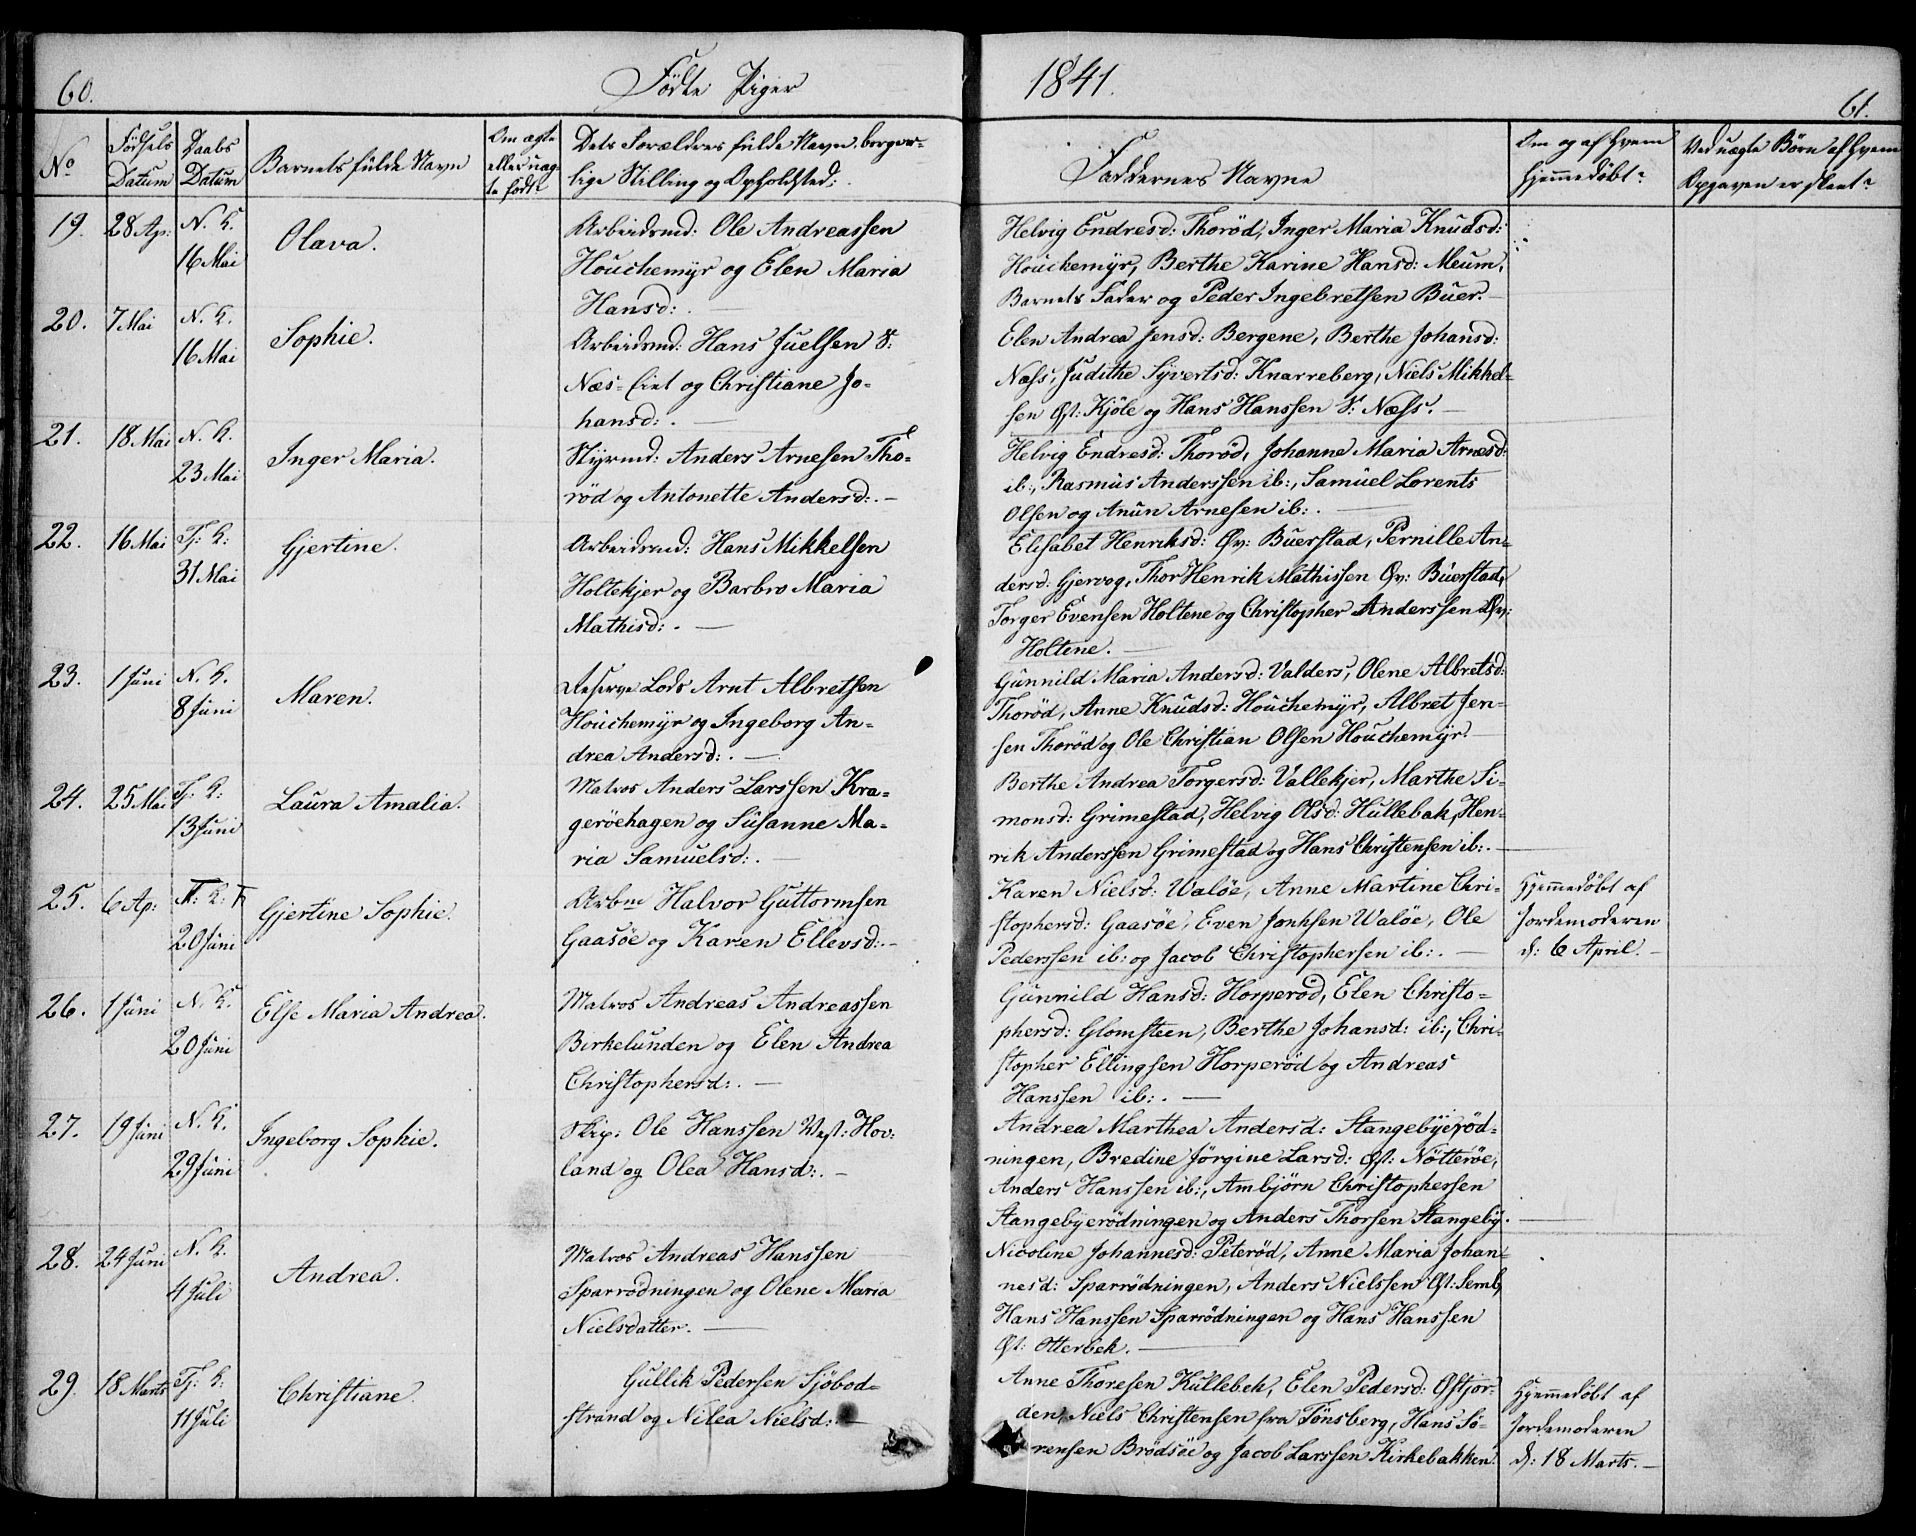 60.
Födte Piger
1841.
61.
No
Födsels Datum
Daabs Datum
Barnets fulde Navn
Om ægte eller uægte födt
Dets Forældres fulde Navn, borgerlige Stilling og Opholdsted:
Faddernes Navne
Om og af hvem hjemmedöbt?
Ved uægte Börn af hvem Opgaven er skeet?
19.
28 Ap:
N. K.
16 Mai
Olava.
Arbeidsmd: Ole Andreassen
Houchemyr og Elen Maria
Hansd: . —
Helvig Endresd: Thoröd, Inger Maria Knudsd:
Houchemyr, Berthe Karine Hansd: Meum,
Barnets Fader og Peder Ingebretsen Buer. —
20.
7 Mai
N. K.
16 Mai
Sophie.
Arbeidsmd: Hans Juelsen V:
Næs-Eiet og Christiane Jo-
hansd: . —
Elen Andrea Jensd: Bergene, Berthe Johansd:
Næss, Judithe Syvertsd: Knarreberg, Niels Mikkel-
sen Øst: Kjöle og Hans Hanssen V: Næss. —
21.
18 Mai
N. K.
23 Mai
Inger Maria.
Styrmd: Anders Arnesen Tho-
röd og Antonette Andersd: . —
Helvig Endresd: Thoröd, Johanne Maria Arnesd:
ib:, Rasmus Anderssen ib:, Samuel Lorents
Olsen og Anun Arnesen ib: . —
22.
16 Mai
Tj: K:
31 Mai
Gjertine.
Arbeidsmd: Hans Mikkelsen
Holtekjer og Barbro Maria
Mathisd: . —
Elisabet Henriksd: Øv: Buerstad, Pernille An-
dersd: Gjervog, Thor Henrik Mathissen Øv: Buerstad,
Torger Evensen Holtene og Christopher Anderssen Øv:
Holtene. —
23.
1 Juni
N. K.
8 Juni
Maren.
Reserve Lods Arnt Albretsen
Houchemyr og Ingeborg An-
drea Andersd: . —
Gunnild Maria Andersd: Valders, Olene Albretsd:
Thoröd, Anne Knudsd: Houchemyr, Albret Jen-
sen Thoröd og Ole Christian Olsen Houchemyr. —
24.
25 Mai
Tj: K:
13 Juni
Laura Amalia.
Matros Anders Larssen Kra-
geröehagen og Susanne Ma-
ria Samuelsd: . —
Berthe Andrea Torgersd: Vallekjer, Marthe Si-
monsd: Grimestad, Helvig Olsd: Hullebak, Hen-
rik Anderssen Grimestad og Hans Christensen ib: . —
25.
6 Ap:
K: T
20 Juni
Gjertine Sophie.
Arbm Halvor Guttormsen
Gaasöe og Karen Ellevsd: . —
Karen Nielsd: Walöe, Anne Martine Chri-
stophersd: Gaasöe, Even Walöe, Ole
Pederssen ib: og Jacob Christophersen ib: . —
Hjemmedöbt af
Jordemoderen
d: 6 April. —
26.
1 Juni
N. K.
20 Juni
Else Maria Andrea.
Matros Andreas Andreassen
Birkelunden og Elen Andrea
Christophersd: . —
Gunnild Hansd: Horperöd, Elen Christo-
phersd: Glomsteen, Berthe Johansd: ib:, Chri-
stopher Ellingsen Horperöd og Andreas
Hanssen ib: . —
27.
19 Juni
N. K.
29 Juni
Ingeborg Sophie.
Skip: Ole Hanssen West: Hov-
land og Olea Hansd: . —
Andrea Marthea Andersd: Stangebyeröd-
ningen, Bredine Jörgine Larsd: Øst: Nötteröe,
Anders Hanssen ib:, Ambjörn Christophersen
Stangebyerödningen og Anders Thorsen Stangeby. —
28.
24 Juni
N. K.
4 Juli
Andrea.
Matros Andreas Hanssen
Sparrödningen og Olene Maria
Nielsdatter. —
Nicoline Johannesd: Peteröd, Anne Maria Johan-
nesd: Sparrödningen, Anders Nielssen Øst: Semb,
Hans Hanssen Sparrödningen og Hans Hanssen
Øst: Otterbek. —
29.
18 Marts
Tj: K:
11 Juli
Christiane.
Gullik Pedersen Sjöbod-
strand og Nilea Nielsd: —
Anne Thoresen Küllebek, Elen Pedersd: Østjor-
den, Niels Christensen fra Tönsberg, Hans Sö-
rensen Brödsöe og Jacob Larssen Kirkebakken.
Hjemmedöbt af
Jordemoderen
d: 18 Marts. —